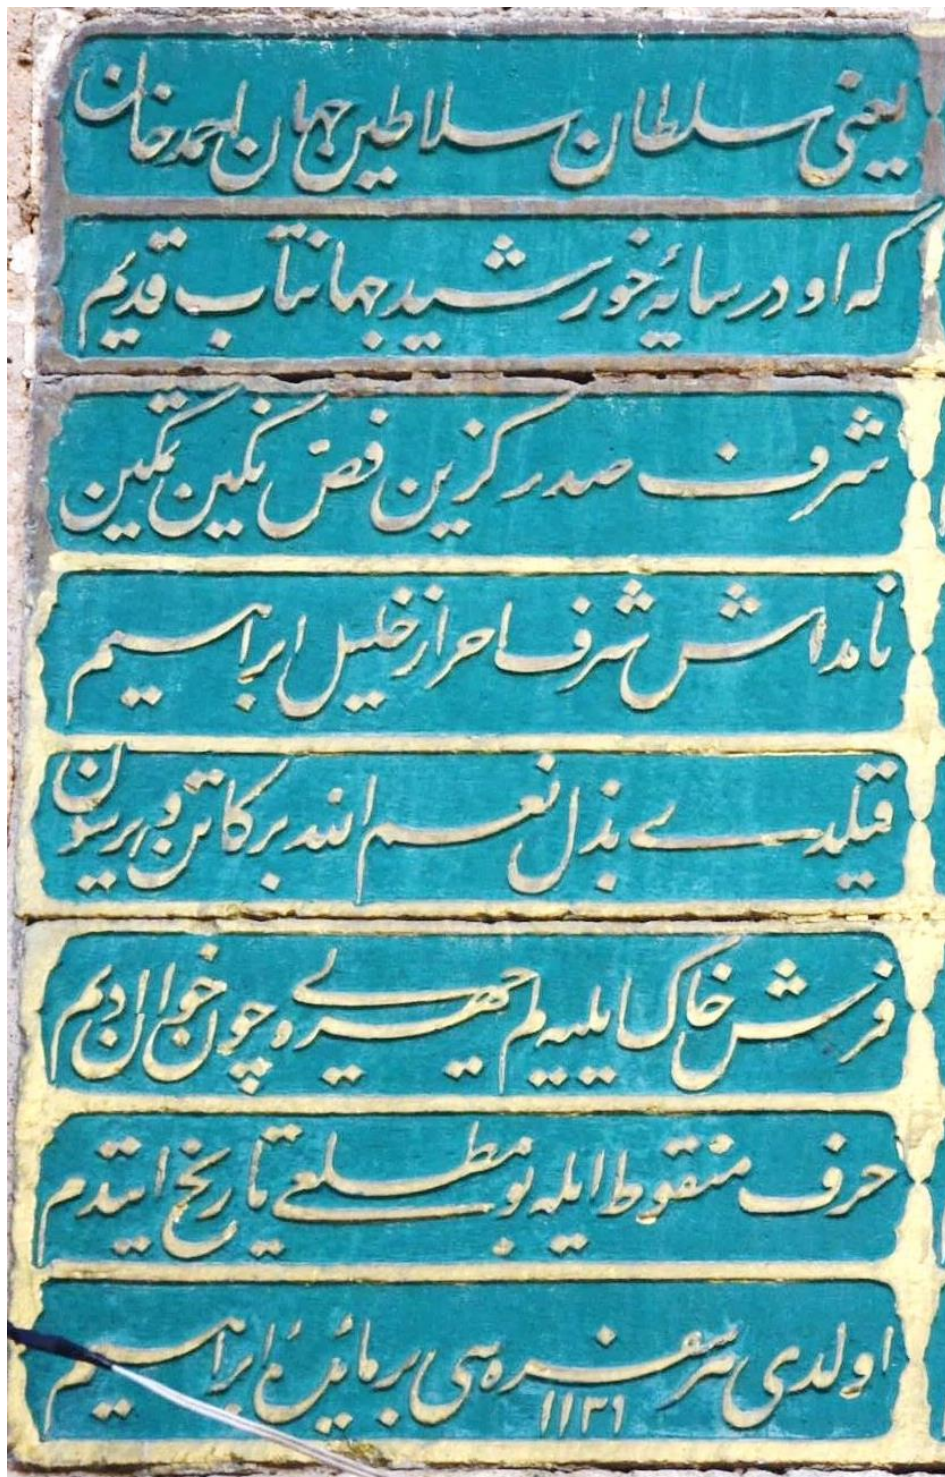 یعنی سلطان سلاطین جهان احمد خان
که او در سایۀ خورشید جهانتاب قدیم
شرف صدر گزین فص نگین تمکین
نامداش شرف احراز خلیل ابراهیم
قیلدی بذل نعم انند برکاتن ویرسون
فرش خاک ایلیه لم چهره یی چون خوان ادیم
حرف منقوط ایله بو مطلعی تاریخ ایتدم
اولدی سر سفره سی بر مائدۀ ابراهیم
١١٣١